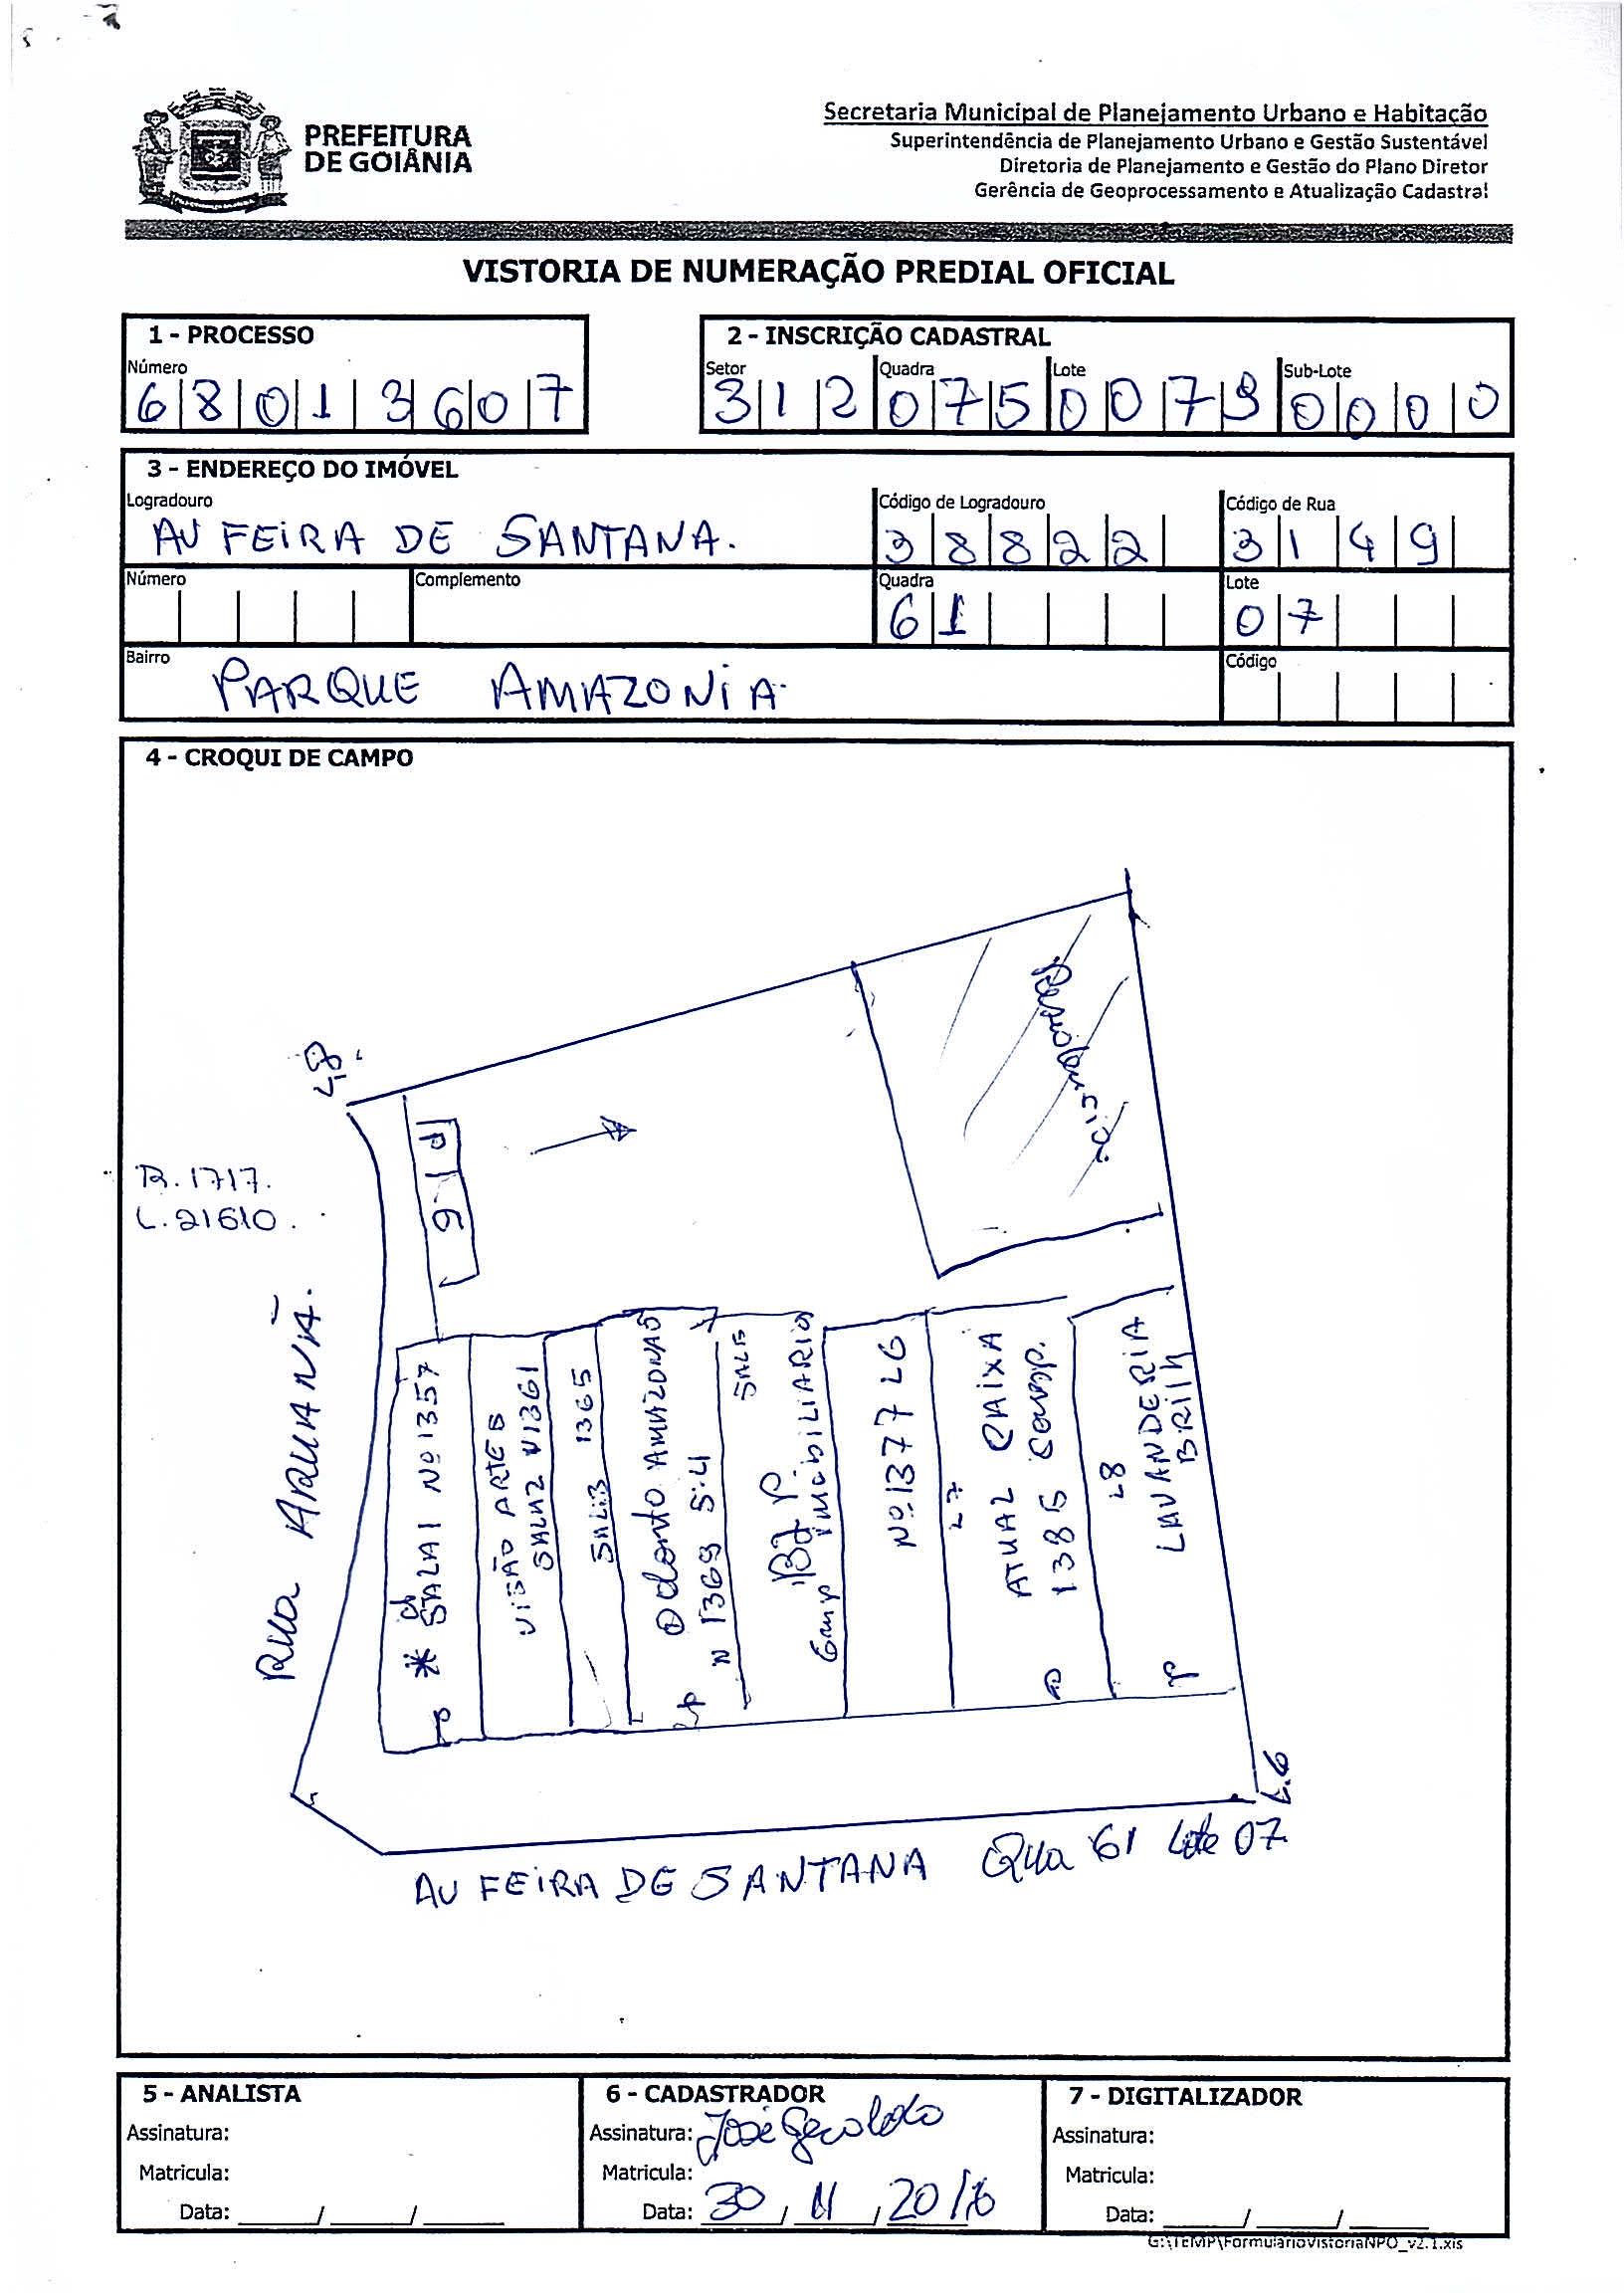 PREFEITURA
DE GOIÂNIA
Secretaria Municipal de Planejamento Urbano e Habitação
Superintendência de Planejamento Urbano e Gestão Sustentável
Diretoria de Planejamento e Gestão do Plano Diretor
Gerência de Geoprocessamento e Atualização Cadastral
VISTORIA DE NUMERAÇÃO PREDIAL OFICIAL
1 - PROCESSO
Número
68013607
2 - INSCRIÇÃO CADASTRAL
Setor Quadra Lote Sub-Lote
312 075 0079 0000
3 - ENDEREÇO DO IMÓVEL
Logradouro Código de Logradouro Código de Rua
AV FEIRA DE SANTANA. 38822 3149
Número Complemento Quadra Lote
61 07
Bairro Código
PARQUE AMAZONIA
4 - CROQUI DE CAMPO
Residencia
L8
R. 1717.
L. 21610.
RUA ARUANÃ.
SALA 1 Nº 1357
VISÃO ARTES
SALA 2 N 1361
SALA 3 1365
Odonto AMAZONAS
N 1369 S.4
SALA 5
Imobiliario
Nº 1377 L6
L7
ATUAL CAIXA
1385 Comp.
L8
LAVANDERIA
BRILH
L.6
AV FEIRA DE SANTANA Qua 61 Lote 07
5 - ANALISTA
Assinatura:
Matricula:
Data: / /
6 - CADASTRADOR
Assinatura: José Geraldo
Matricula:
Data: 30 / 11 / 2016
7 - DIGITALIZADOR
Assinatura:
Matricula:
Data: / /
G:\TEMP\FormularioVistoriaNPO_v2.1.xls